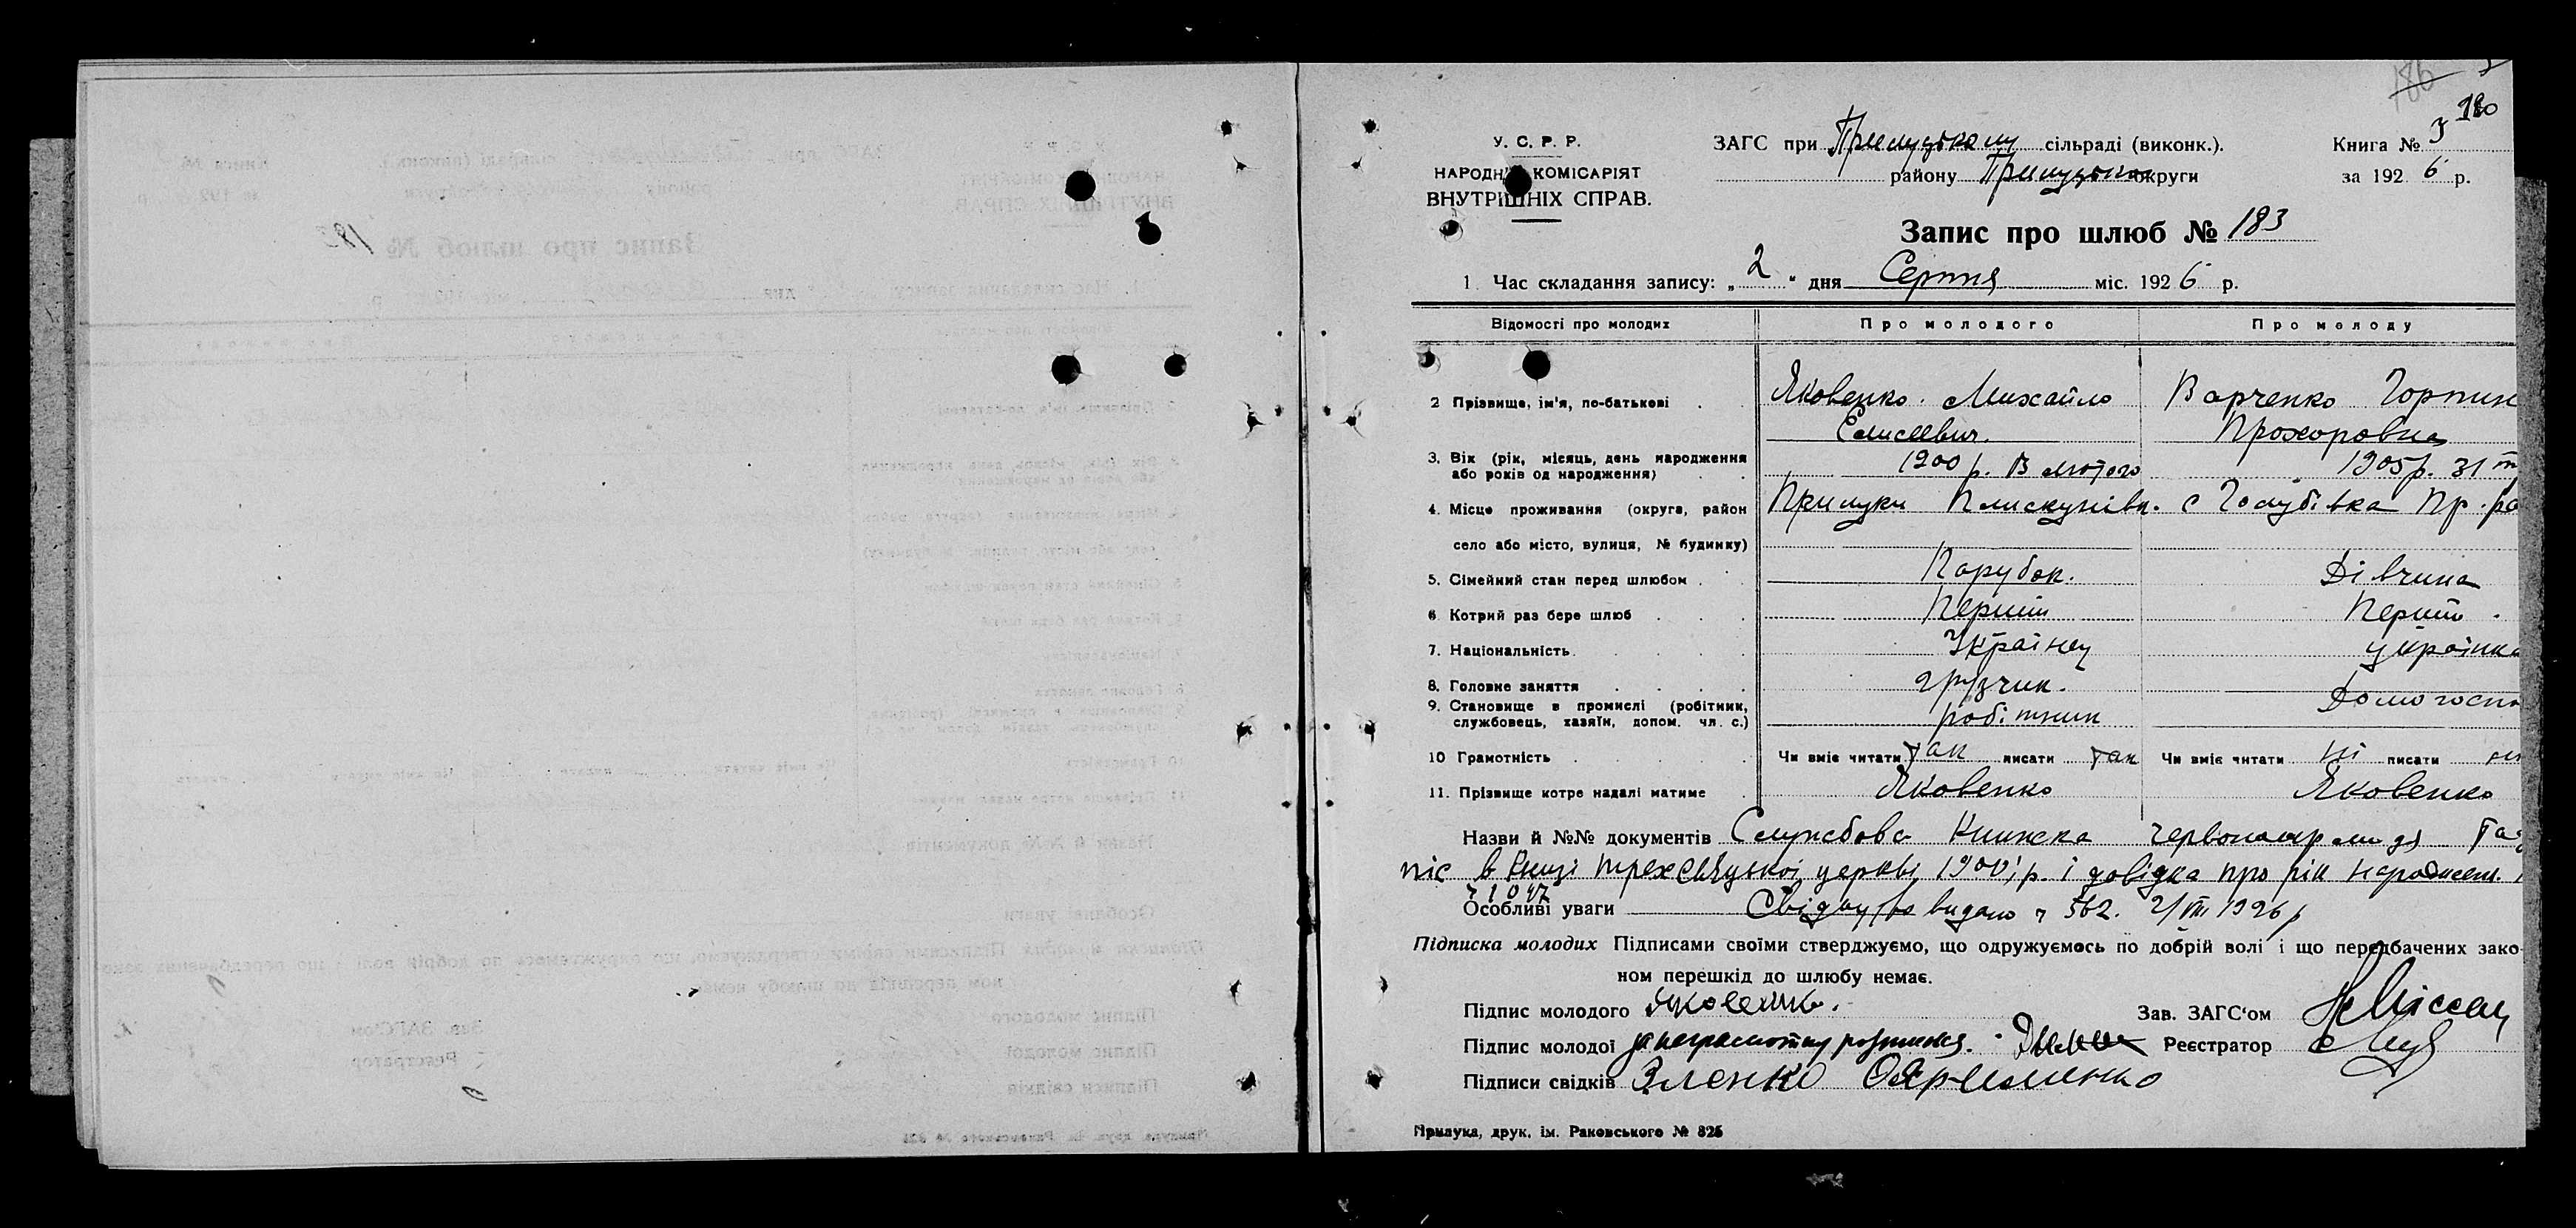 186
180
У. С. Р. Р.
НАРОДНІЙ КОМІСАРІЯТ
ВНУТРІШНІХ СПРАВ.
ЗАГС при Прилуцькому сільраді (виконк.).
району Прилуцької округи
Книга №
за 1926 р.
Запис про шлюб № 183
1. Час складання запису: „2" дня Серпня міс. 1926 р.
Відомості про молодих Про молодого Про молоду
2 Прізвище, ім'я, по-батькові Яковенко Михайло Варченко Горпин
Елисеевич. Прохоровна
3. Вік (рік, місяць, день народження 1900 р. лютого 1905 р. 31
або років од народження)
4. Місце проживання (округа, район Прилуки Плискунівк. с Голубівка Пр. ра
село або місто, вулиця, № будинку)
5. Сімейний стан перед шлюбом Парубок. Дівчина
6 Котрий раз бере шлюб Перший Перший
7. Національність Українец українка
8. Головне заняття грузчик.
9. Становище в промислі (робітник, Домогоспо
службовець, хазяїн, допом. чл. с.) робітник
10 Грамотність Чи вміє читати так писати так Чи вміє читати ні писати ні
11. Прізвище котре надалі матиме Яковенко Яковенко
Назви й №№ документів Службова Книжка червоноармейця
піс в Книзі трехсвяцької церкви 1900 р. і довідка про рік народжен.
ч 1047
Особливі уваги Свідоцтво видано ч 562. 2/VIII 1926 р
Підписка молодих Підписами своїми стверджуємо, що одружуємось по добрій волі і що передбачених зако-
ном перешкід до шлюбу немає.
Підпис молодого Яковенко. Зав. ЗАГС'ом
Підпис молодої за неграмотну розписився. Реєстратор
Підписи свідків Зленко О Яременко
Прилука, друк. ім. Раковського № 825